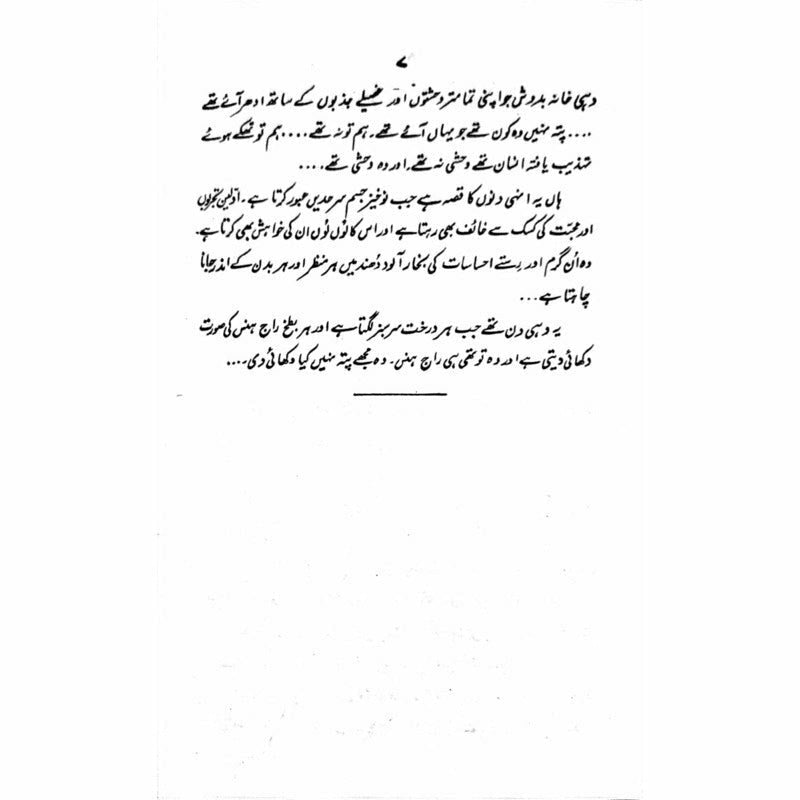 ۷
وہی خانہ بدوش جو اپنی تمامتر وحشتوں اور غصیلے جذبوں کے ساتھ ادھر آئے تھے
.... پتہ نہیں وہ کون تھے جو یہاں آئے تھے۔ ہم تو نہ تھے .... ہم تو تھکے ہوئے
تہذیب یافتہ انسان تھے وحشی نہ تھے۔ اور وہ وحشی تھے ....
ہاں یہ انہی دنوں کا قصہ ہے جب نوخیز جسم سرحدیں عبور کرتا ہے۔ اوّلین تجربوں
اور محبّت کی کسک سے خائف بھی رہتا ہے اور اس کا لُوں لُوں ان کی خواہش بھی کرتا ہے۔
وہ اُن گرم اور رِستے احساسات کی بخار آلود دُھند میں ہر منظر اور ہر بدن کے اندر جانا
چاہتا ہے ...
یہ وہی دن تھے جب ہر درخت سرسبز لگتا ہے اور ہر بطخ راج ہنس کی صورت
دکھائی دیتی ہے اور وہ تو تھی ہی راج ہنس۔ وہ مجھے پتہ نہیں کیا دکھائی دی ....